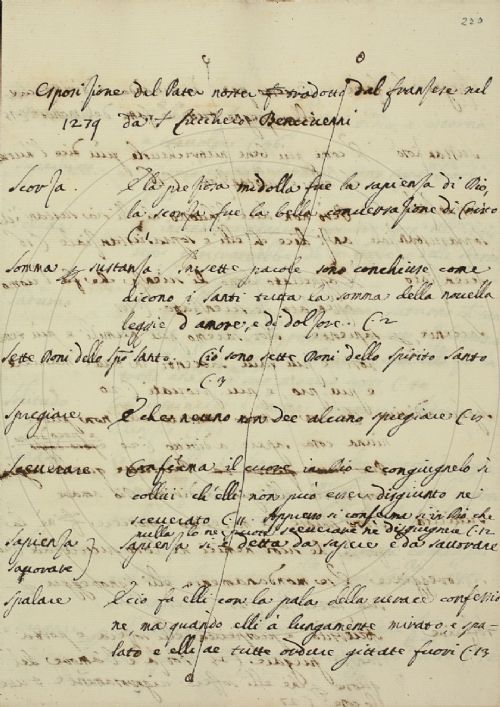 220
Esposizione del Pater noster tradotto dal franzese nel
1279 da Zucchero Bencivenni
Scorza. E la preziosa midolla fue la sapienza di Dio,
la scorza fue la bella conversazione di Cristo
C. 1
Somma sustanza. In sette parole sono conchiuse come
dicono i Santi tutta la somma della novella
legge d'amore, e di dolzore. C. 2
Sette Doni dello Spo Santo. Ciò sono sette Doni dello Spirito Santo
C. 3
Spregiare E che neuno non dee alcuno spregiare C.
Sceverare Conferma il cuore in Dio e congiugnelo sì
collui ch'elli non può esser disgiunto né
sceverato C. 11 Appresso si conferma sì in Dio, che
nulla lo ne può sceverare né dispiccare C. 12
Sapienza Sapienza si è detta da sapere e da savorare
savorare
Spalare E ciò fa elli con la pala della verace confessio
ne, ma quando elli à lungamente mirato e spa-
lato e elli àe tutte ordure gittate fuori C. 13